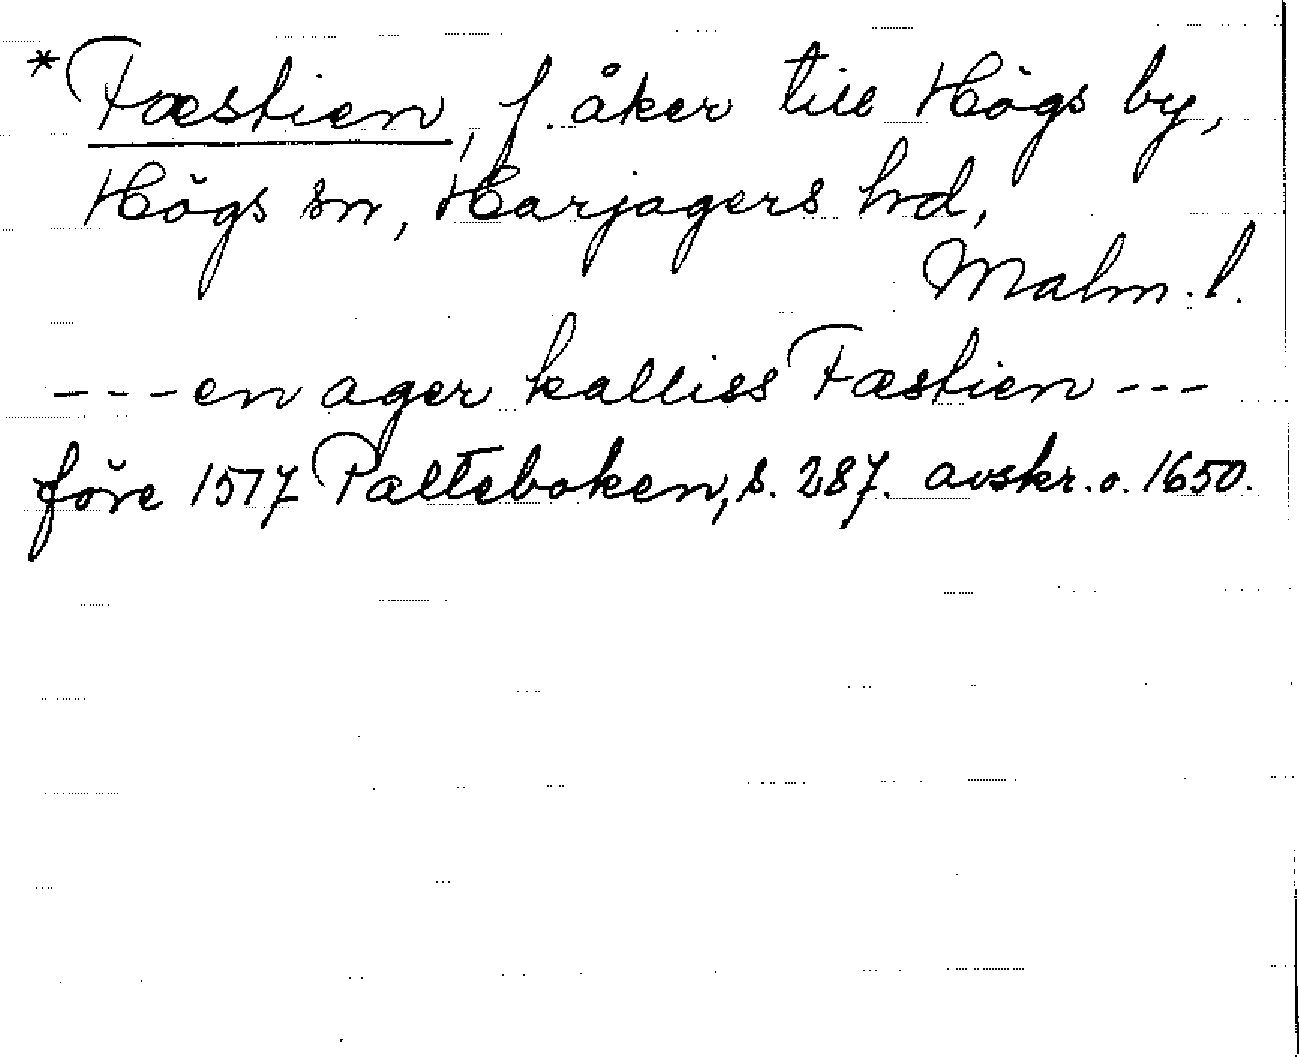 *Fæstien, f. åker till Högs by,
Högs sn, Harjagers hd,
Malm. l.
---en ager kalliss Fæstien---
före 1517 Palteboken, s. 287. avskr. o. 1650.